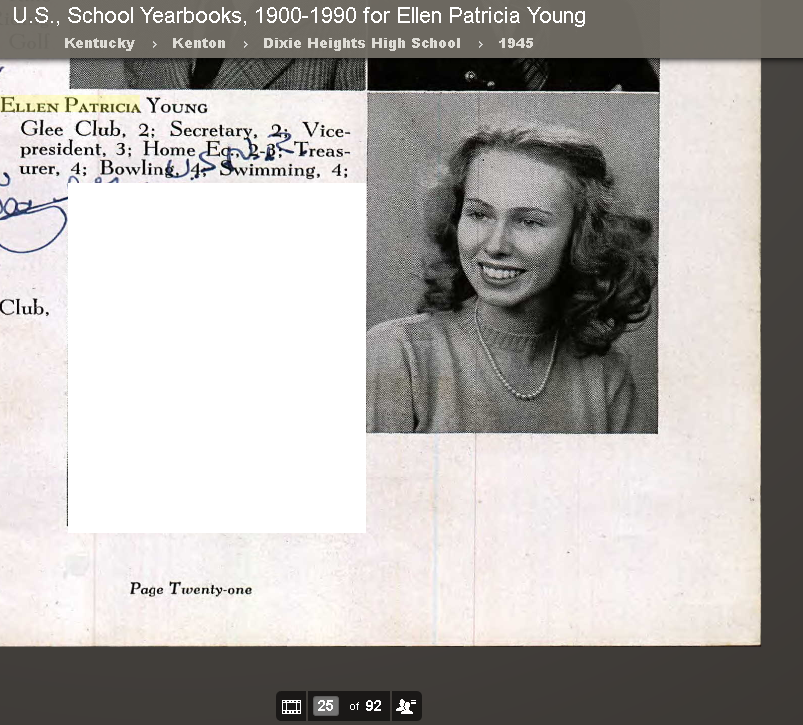 U.S., School Yearbooks, 1900-1990 for Ellen Patricia Young
Kentucky › Kenton › Dixie Heights High School › 1945
Golf
ELLEN PATRICIA YOUNG
Glee Club, 2; Secretary, 2; Vice-
president, 3; Home Ec., 2-3; Treas-
urer, 4; Bowling, 4; Swimming, 4;
U.S.N.R.
Club,
Page Twenty-one
25 of 92